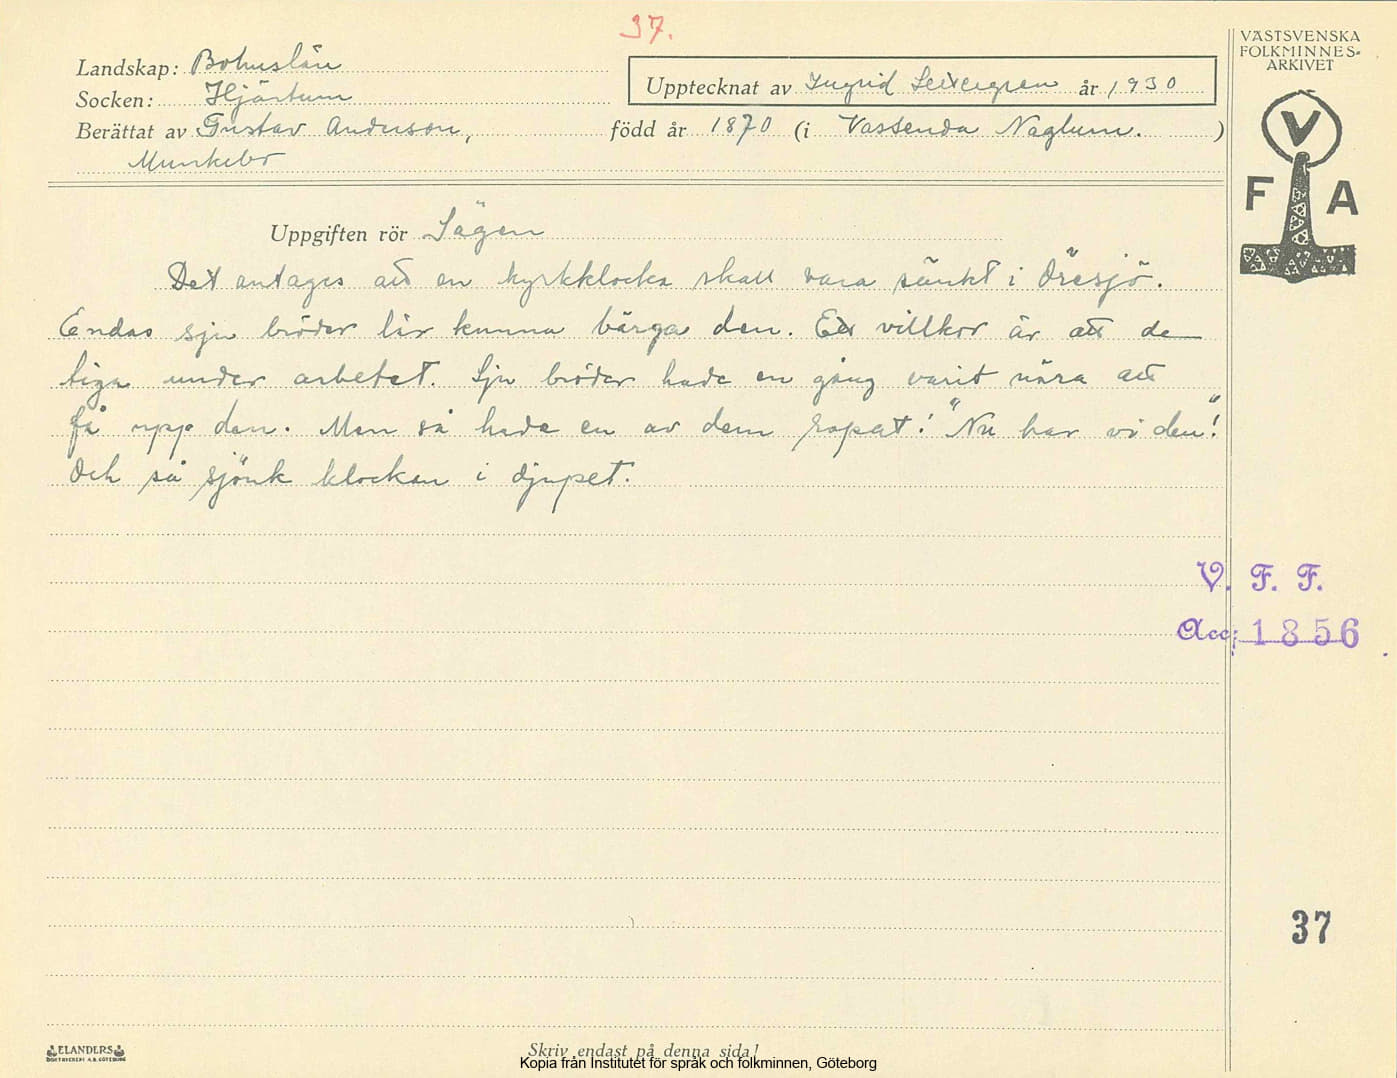 37.
VÄSTSVENSKA
FOLKMINNES-
ARKIVET
Landskap: Bohuslän
Socken: Hjärtum
Upptecknat av Ingrid år 1930
Berättat av Gustav Anderson, född år 1870 (i Vassenda Naglum. )
Munkebo
V
F A
Uppgiften rör Sägen
Det antages att en kyrkklocka skall vara sänkt i Öresjö.
Endas sju bröder lär kunna bärga den. Ett villkor är att de
tiga under arbetet. Sju bröder hade en gång varit nära att
få upp den. Men så hade en av dem ropat: "Nu har vi den"!
Och så sjönk klockan i djupet.
V. F. F.
Acc: 1856
37
ELANDERS
BOKTRYCKERI A.B. GÖTEBORG
Skriv endast på denna sida!
Kopia från Institutet för språk och folkminnen, Göteborg